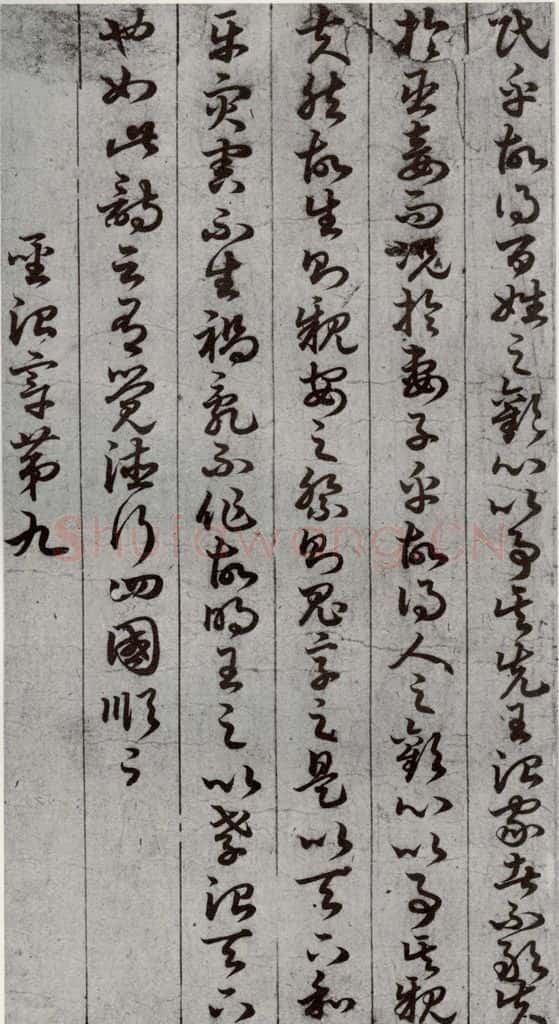 民乎故得百姓之歡心以事其先王治家者不敢失
於臣妾而況於妻子乎故得人之歡心以事其親
夫然故生則親安之祭則鬼享之是以天下和
平災害不生禍亂不作故明王之以孝治天下
也如此詩云有覺德行四國順之
聖治章第九
Shufawang.CN